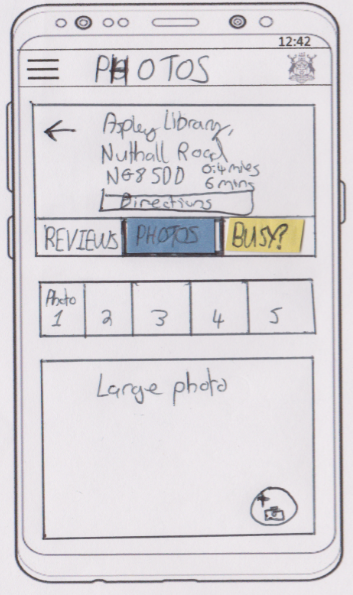 12:42
PHOTOS
Aspley Library,
Nuthall Road
NG8 5DD 0.4 miles
6 mins
Directions
REVIEWS PHOTOS BUSY?
Photo
1 2 3 4 5
Large photo
+